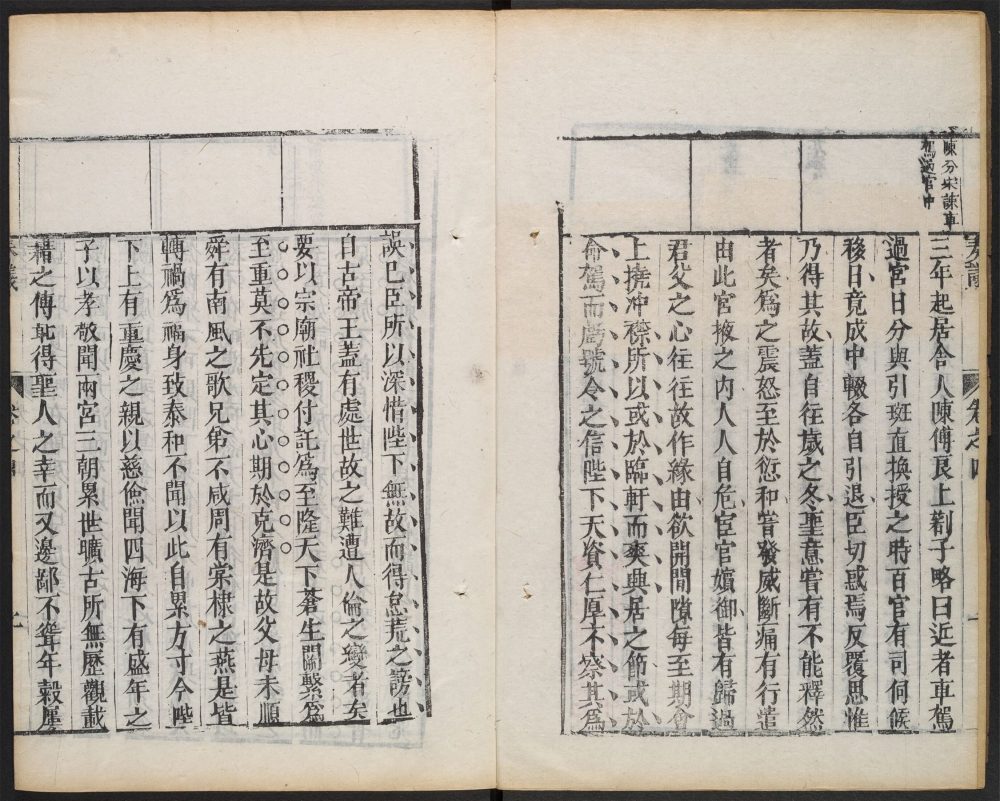 陳分宋諫車
駕過宮中
奏議
卷之四
一
三年起居舍人陳傅良上劄子略曰近者車駕
過宮日分與引班直換授之時百官有司伺候
移日竟成中輟各自引退臣切惑焉反覆思惟
乃得其故蓋自往歲之冬聖意嘗有不能釋然
者矣為之震怒至於愆和嘗發威斷痛有行遣
由此宮掖之內人人自危臣官嬪御皆有歸過
君父之心往往故作緣由欲開間隙每至期會
上撓冲襟所以或於臨軒而爽興居之節或於
命駕而虧號令之信陛下天資仁厚不察其為
誤已臣所以深惜陛下無故而得怠荒之謗也
自古帝王蓋有處世故之難遭人倫之變者矣
要以宗廟社稷付託為至隆天下蒼生關繫為
至重莫不先定其心期於克濟是故父母未順
舜有南風之歌兄弟不咸周有棠棣之燕是皆
轉禍為福身致泰和不聞以此自累方寸今陛
下上有重慶之親以慈儉聞四海下有盛年之
子以孝敬聞兩宮三朝累世曠古所無歷觀載
籍之傳孰得聖人之幸而又邊鄙不聳年穀屢
奏議
卷之四